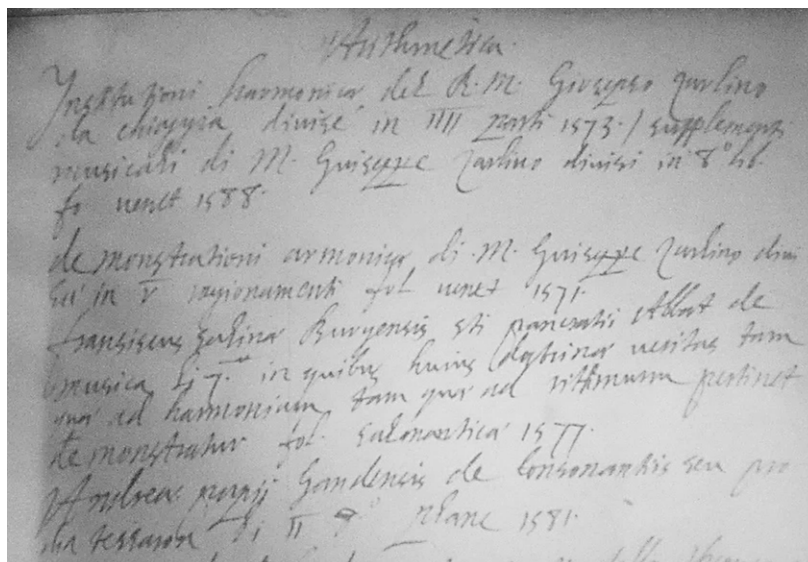 Arithmetica.
Institutioni harmonica del R. M. Gioseppo zarlino
da chioggia divise in IIII parti 1573. / supplementi
musicali di M. Guiseppe zarlino divisi in 8° lib.
fo venet 1588.
demonstrationi armonica di M. Guiseppe zarlino divi
se in V ragionamenti fol venet 1571.
franciscus salina Burgensis sti pancratii Abbat de
musica li 7. in quibus huius doctrina veritas tam
qua ad harmoniam tam qua ad rithmum pertinet
demonstratur fol. salmantica 1577.
Andrea papij Gandensis de consonantiis seu pro
dia tessaron li II 8° plant 1581.